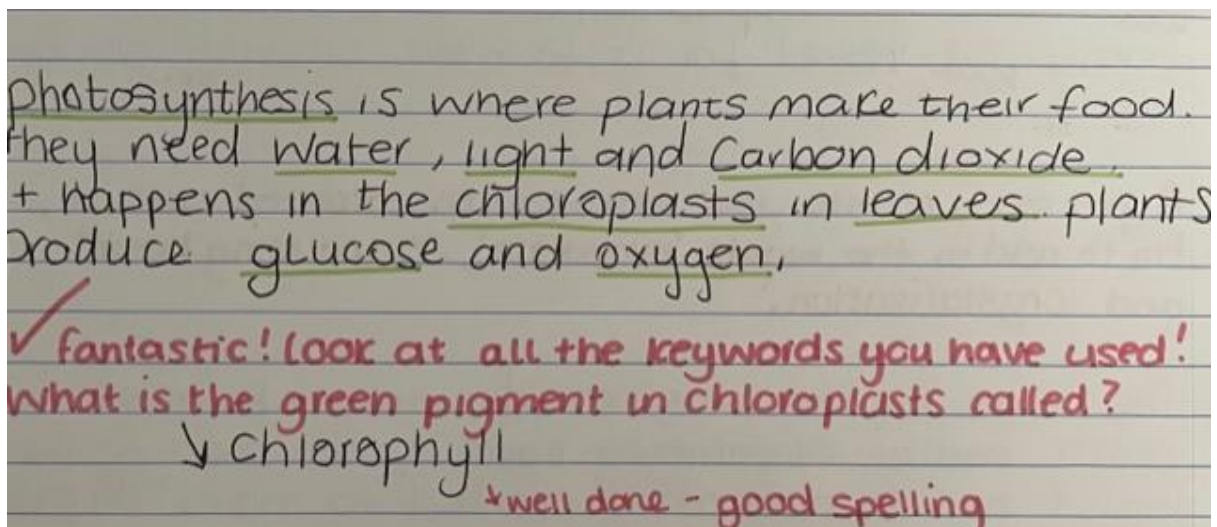 photosynthesis is where plants make their food.
they need water, light and carbon dioxide.
t happens in the chloroplasts in leaves. plants
produce glucose and oxygen.
✓ fantastic! look at all the keywords you have used!
What is the green pigment in chloroplasts called?
↘ chlorophyll
*well done - good spelling